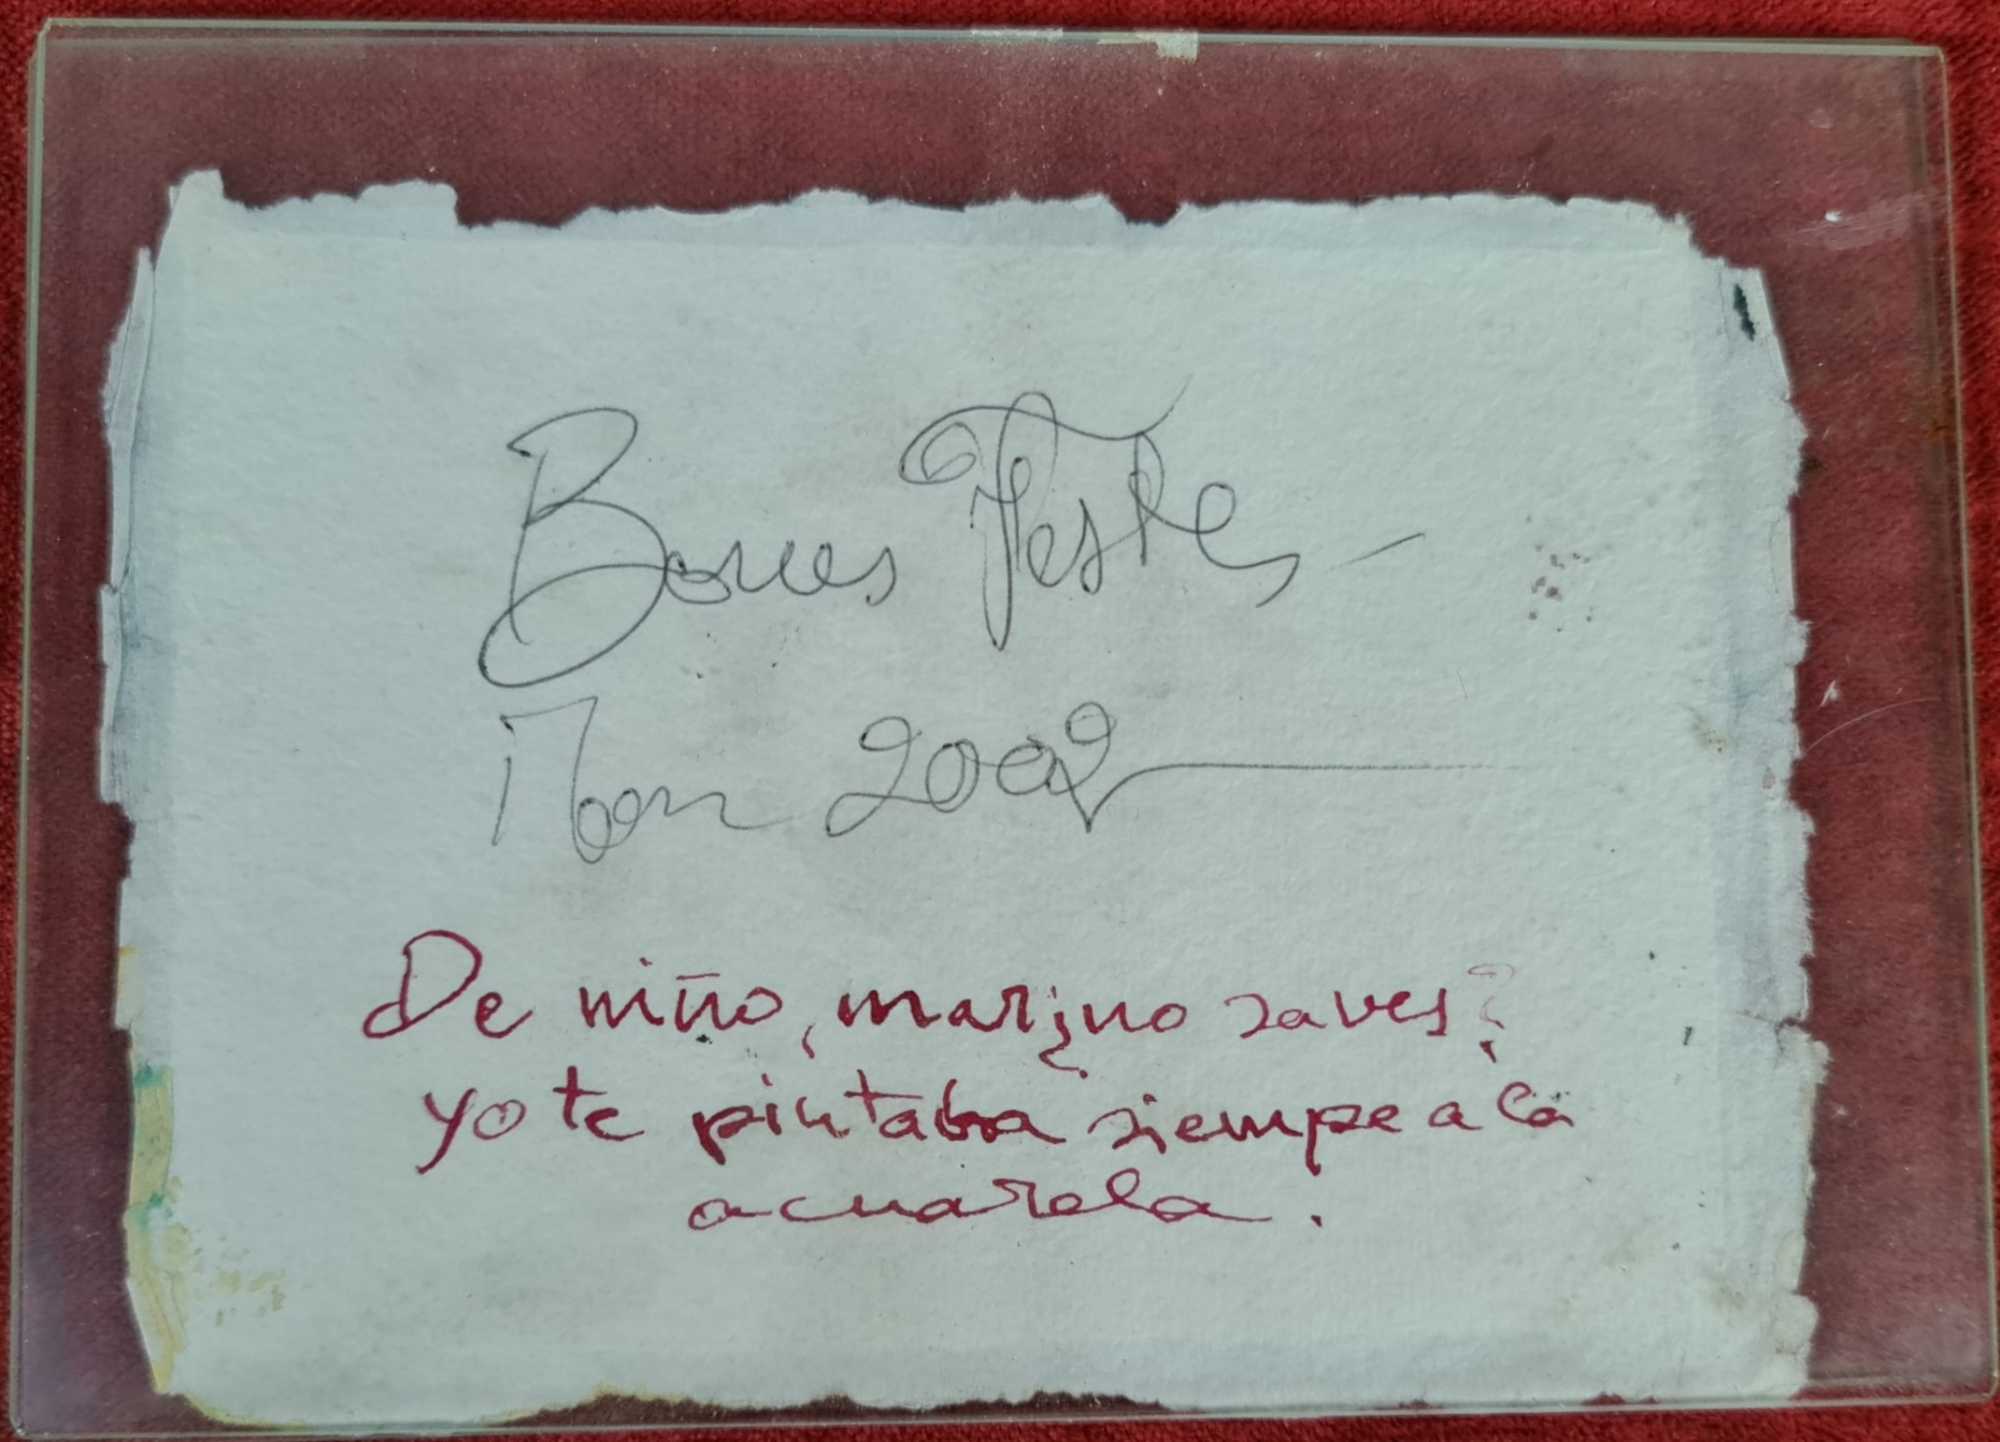 Bones Festes
2002
De niño, marino saves?
yo te pintaba siempre a la
acuarela.